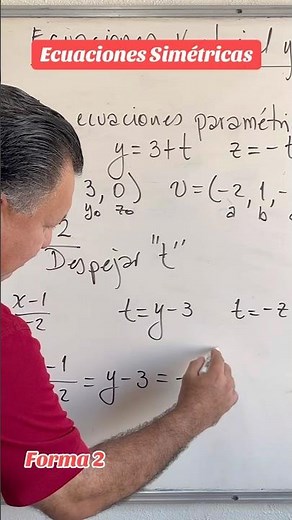 Ecuaciones Simétricas
ecuaciones paramétri
y=3+t z=-t
3, 0) v=(-2, 1, -
y₀ z₀ a b
2
Despejar "t"
x-1 t=y-3 t=-z
-2
-1 = y-3 = -
-2
Forma 2